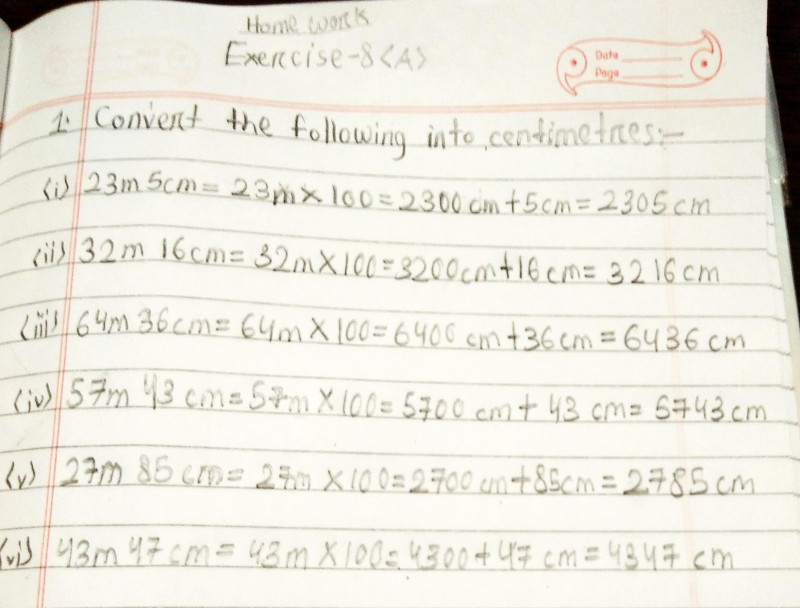 Home work
Exercise-8<A>
Date
Page
1. Convert the following into centimetres:-
(i) 23m 5cm = 23m × 100 = 2300 cm + 5cm = 2305 cm
(ii) 32m 16cm = 32m × 100 = 3200cm + 16 cm = 3216 cm
(iii) 64m 36cm = 64m × 100 = 6400 cm + 36cm = 6436 cm
(iv) 57m 43 cm = 57m × 100 = 5700 cm + 43 cm = 5743 cm
(v) 27m 85 cm = 27m × 100 = 2700 cm + 85cm = 2785 cm
(vi) 43m 47 cm = 43m × 100 = 4300 + 47 cm = 4347 cm